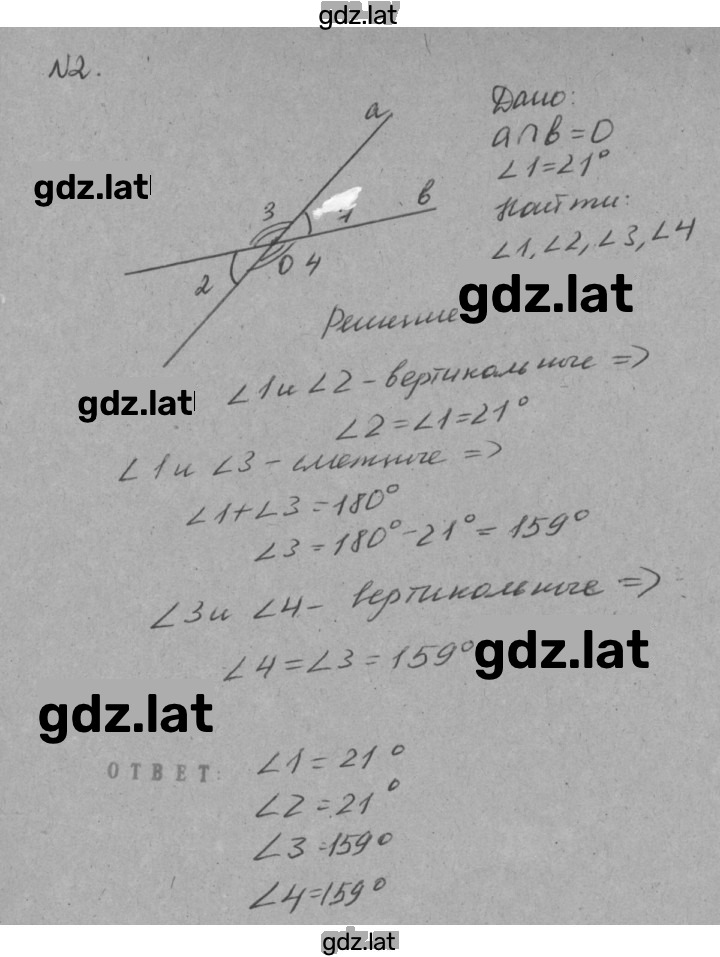 gdz.lat
N2.
a
Дано:
a∩b=O
∠1=21°
gdz.lat
Найти:
в
3
1
∠1, ∠2, ∠3, ∠4
2
O 4
gdz.lat
Решение
∠1 и ∠2 - вертикальные =>
gdz.lat
∠2=∠1=21°
∠1 и ∠3 - смежные =>
∠1+∠3=180°
∠3=180°-21°=159°
∠3 и ∠4 - вертикальные =>
∠4=∠3=159°
gdz.lat
gdz.lat
ОТВЕТ: ∠1=21°
∠2=21°
∠3=159°
∠4=159°
gdz.lat